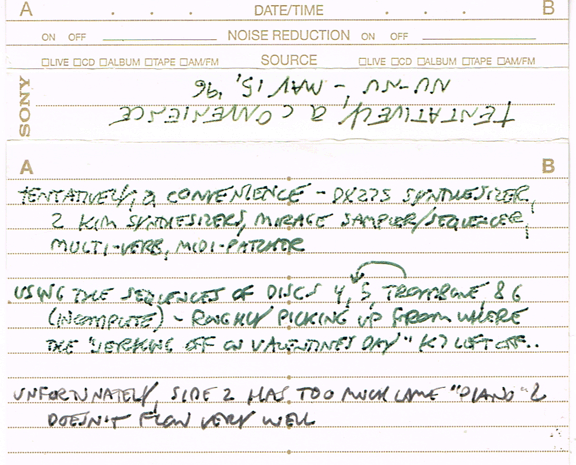 A DATE/TIME B
ON OFF NOISE REDUCTION ON OFF
LIVE CD ALBUM TAPE AM/FM SOURCE LIVE CD ALBUM TAPE AM/FM
SONY
TENTATIVELY, a CONVENIENCE
NU-NU - MAY 15, '96
A B
TENTATIVELY, a CONVENIENCE - DX27S SYNTHESIZER,
2 KIM SYNTHESIZERS, MIRAGE SAMPLER/SEQUENCER,
MULTI-VERB, MIDI-PATCHER
USING THE SEQUENCES OF DISCS 4, 5, TROMBONE, & 6
(INCOMPLETE) - ROUGHLY PICKING UP FROM WHERE
THE "JERKING OFF ON VALENTINES DAY" K7 LEFT OFF..
UNFORTUNATELY, SIDE 2 HAS TOO MUCH LAME "PIANO" &
DOESN'T FLOW VERY WELL